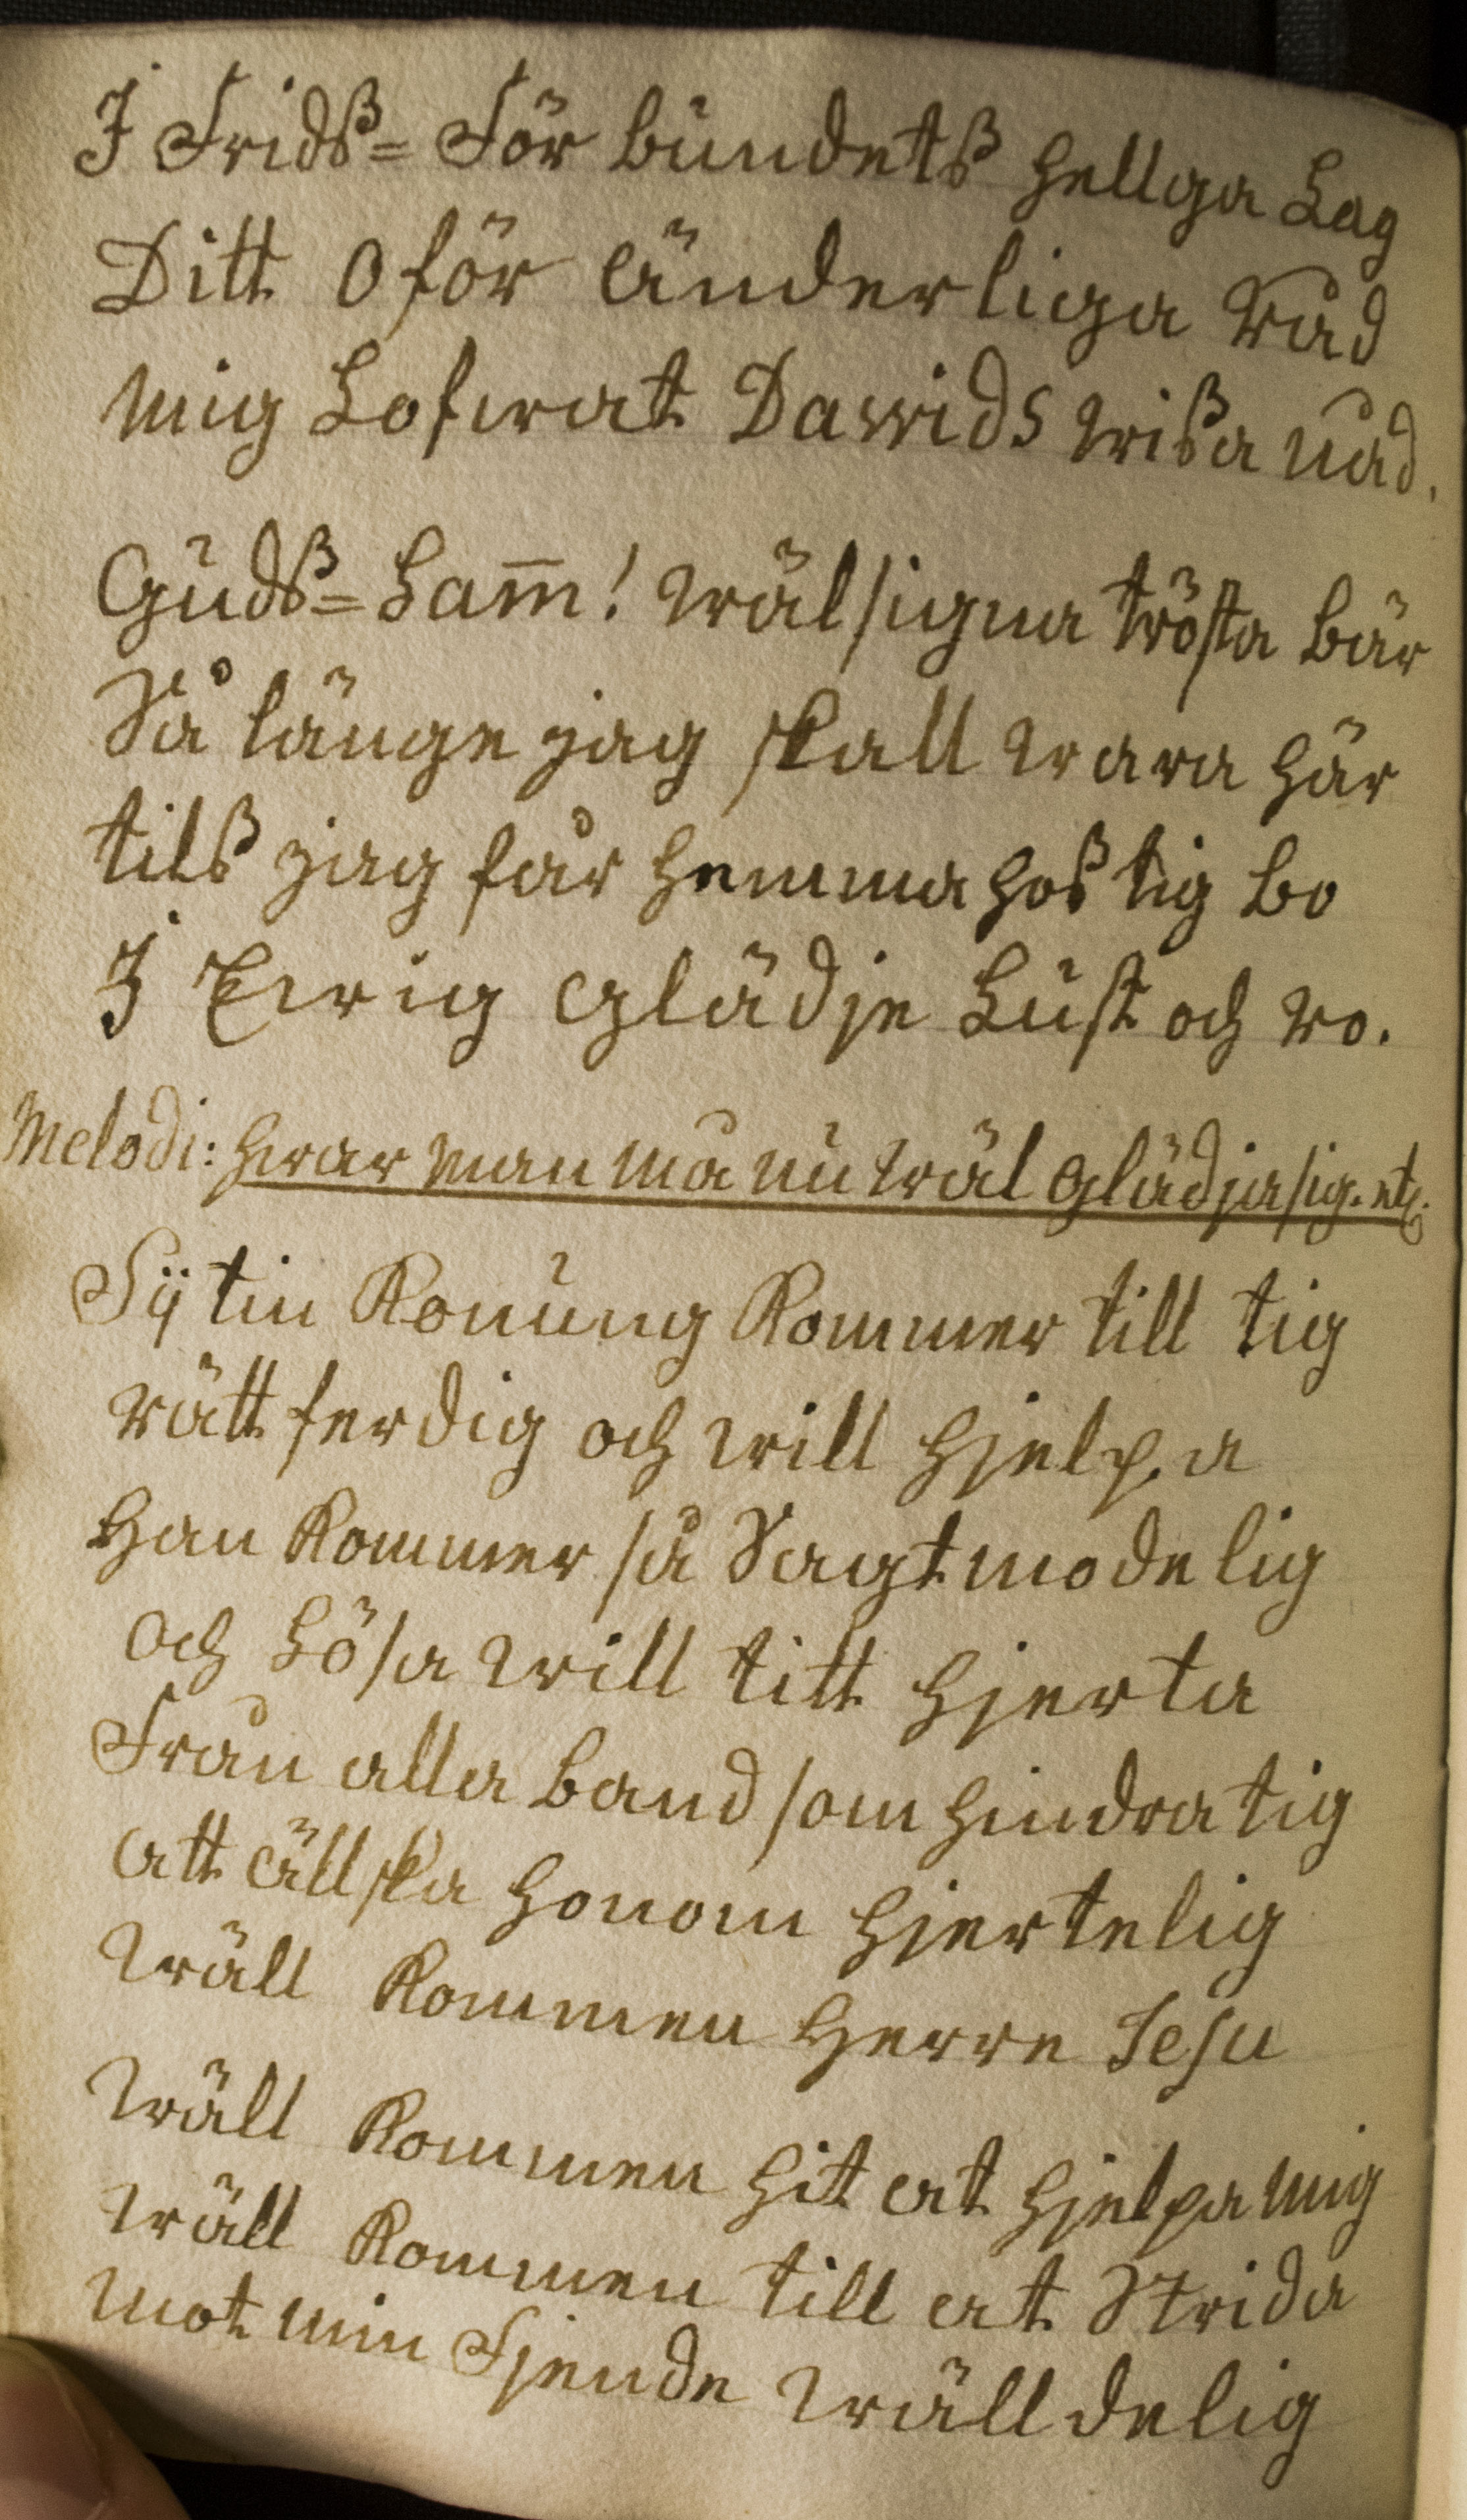 I Fridß= För bundetß hellga Lag
Ditt Oför änderliga råd
mig Lofwat Dawids wißa nåd.
Gudß= Lam̄! wälsigna trösta bär
Så länge jag skall wara här
tilß jag får hemma hoß tig bo
I Ewig glädje Lust och ro.
Melodi: hwar man må nu wäl glädja sig. etc.
Sÿ tin Konung Kommer till tig
rätt ferdig och will hjelpa
Han Kommer så Sagtmodelig
och Lösa will titt hjerta
Från alla band som hindra tig
att ällska honom hjertelig
Wäll Kommen Herre Jesu
Wäll Kommen hit at hjelpa mig
Wäll Kommen till at Strida
mot min Fjende wälldelig